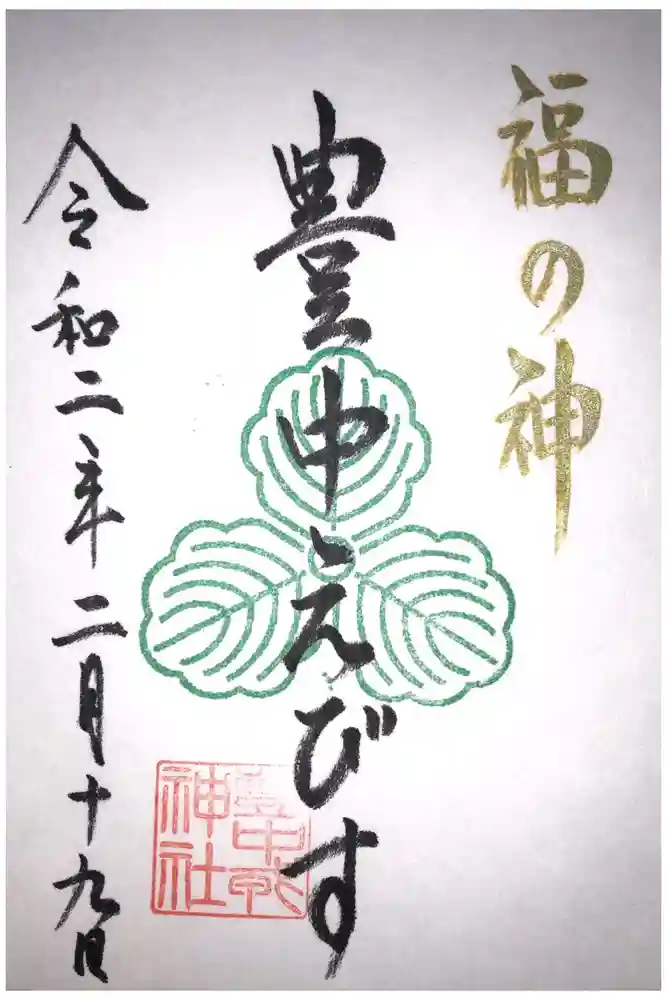 福の神
豊中えびす
令和二年二月十九日
豊中戎
神社